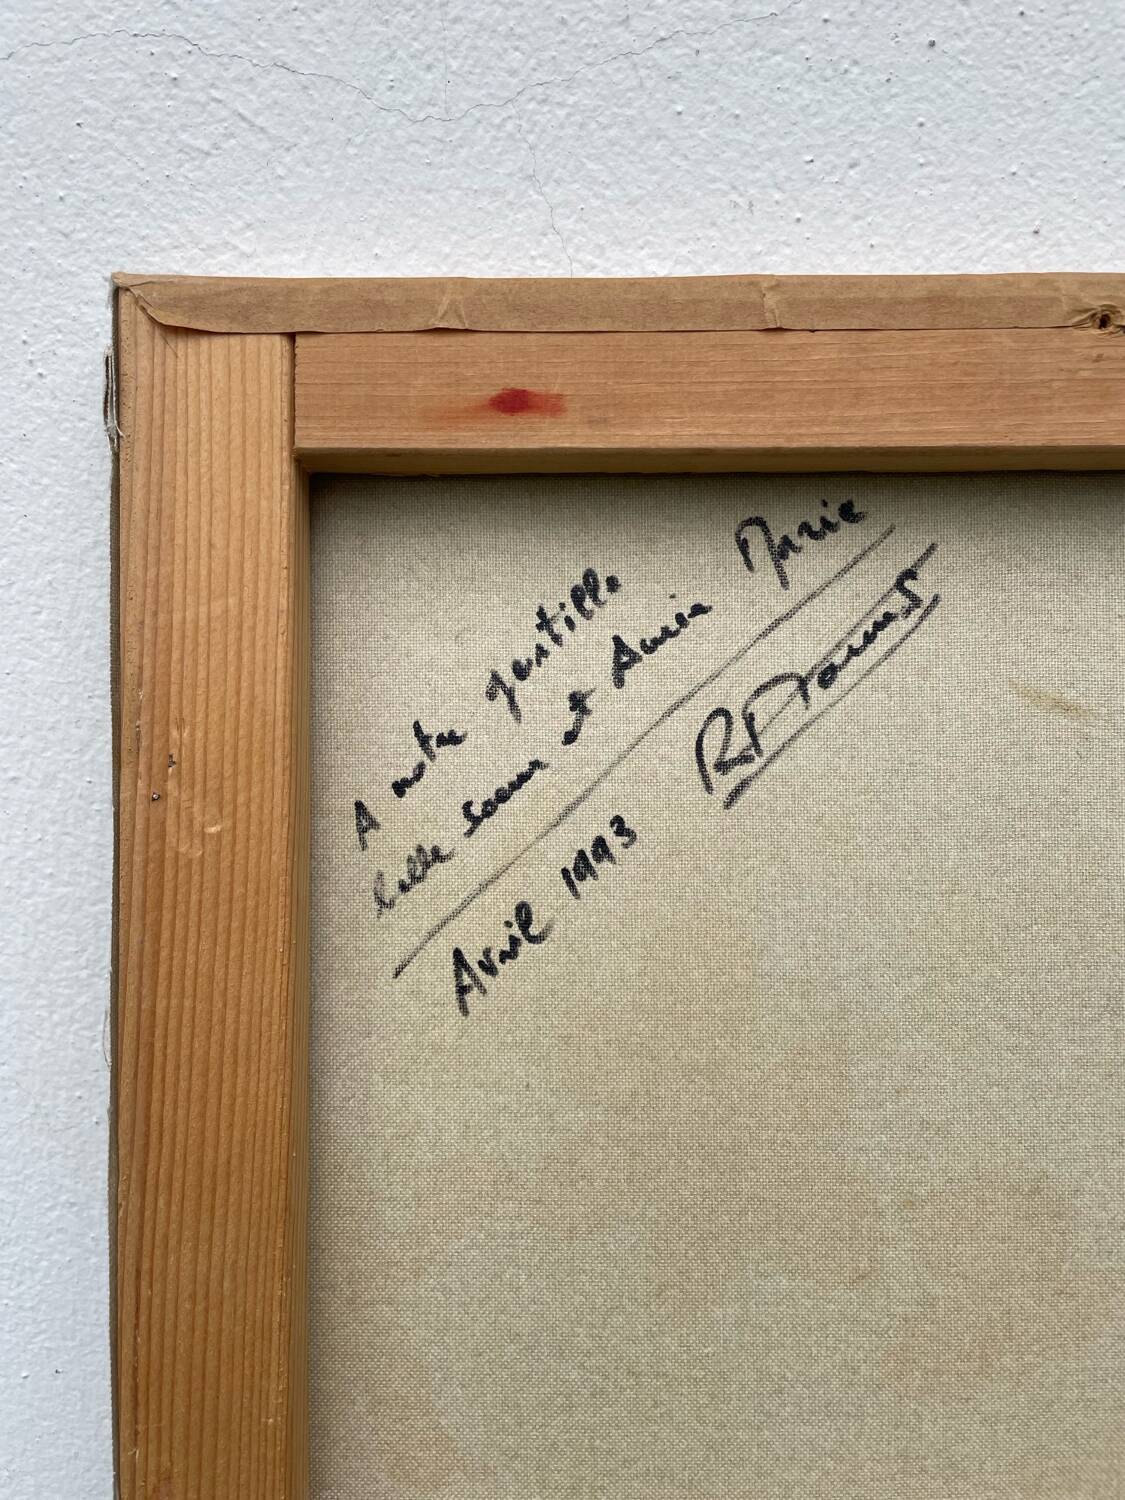 A notre gentille
belle soeur et Amie Marie
Avril 1993